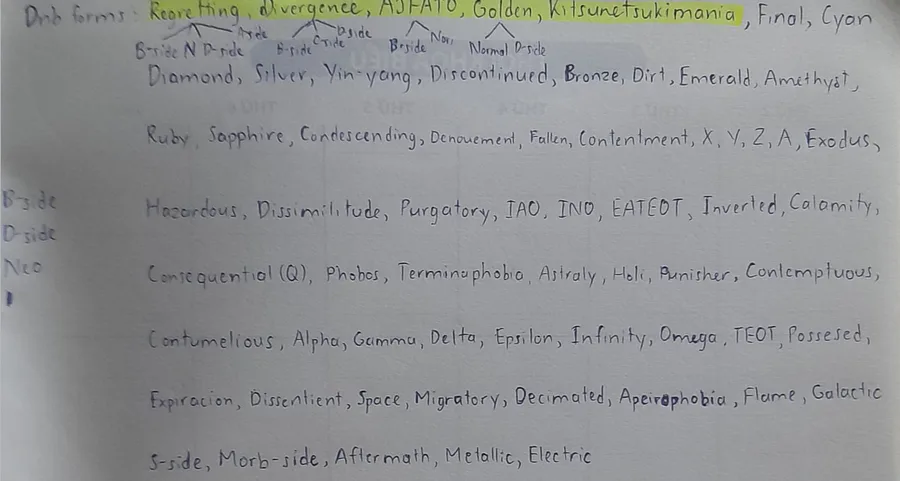 Dnb forms: Regretting, Divergence, AJFATO, Golden, Kitsunetsukimania, Final, Cyan
A-side D-side
B-side N D-side B-side C-side B-side Normal D-side
Diamond, Silver, Yin-yang, Discontinued, Bronze, Dirt, Emerald, Amethyst,
Ruby, Sapphire, Condescending, Denouement, Fallen, Contentment, X, Y, Z, A, Exodus,
B-side
Hazardous, Dissimilitude, Purgatory, IAO, INO, EATEOT, Inverted, Calamity,
D-side
Neo
Consequential (Q), Phobos, Terminophobia, Astraly, Heli, Punisher, Contemptuous,
Contumelious, Alpha, Gamma, Delta, Epsilon, Infinity, Omega, TEOT, Possesed,
Expiracion, Dissentient, Space, Migratory, Decimated, Apeirophobia, Flame, Galactic
S-side, Morb-side, Aftermath, Metallic, Electric